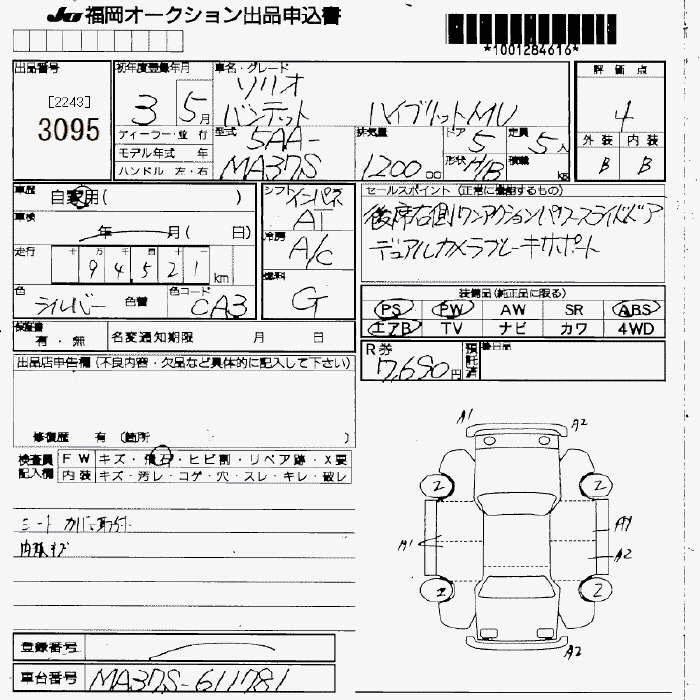 JU 福岡オークション出品申込書
*1001284616*
出品番号
[2243]
3095
初年度登録年月
3 5月
ディーラー・並行
モデル年式 年
ハンドル 左・右
車名・グレード
ソリオ
バンデット ハイブリットMV
型式
5AA-
MA37S
排気量
1200 cc
ドア 5
形状 H/B
定員 5人
積載 kg
評価点
4
外装 内装
B B
車歴
自家用( )
車検
年 月( 日)
走行
十 万 千 百 十 一
9 4 5 2 1 km
色
シルバー 色替
色コード
CA3
シフト インパネ
AT
冷房
A/C
燃料
G
セールスポイント (正常に機能するもの)
後席右側ワンアクションパワースライドドア
デュアルカメラブレーキサポート
装備品(純正品に限る)
PS PW AW SR ABS
エアB TV ナビ カワ 4WD
保証書
有・無
名変通知期限 月 日
R券
7,690円
預託済
後日品
出品店申告欄(不良内容・欠品など具体的に記入して下さい)
修復歴 有 (箇所 )
検査員
記入欄
FW キズ・飛石・ヒビ割・リペア跡・X要
内装 キズ・汚レ・コゲ・穴・スレ・キレ・破レ
シートカバー取付
内張キズ
A1 A2
2 2
A1 A1
A2
2 2
A2
登録番号
車台番号 MA37S-611781